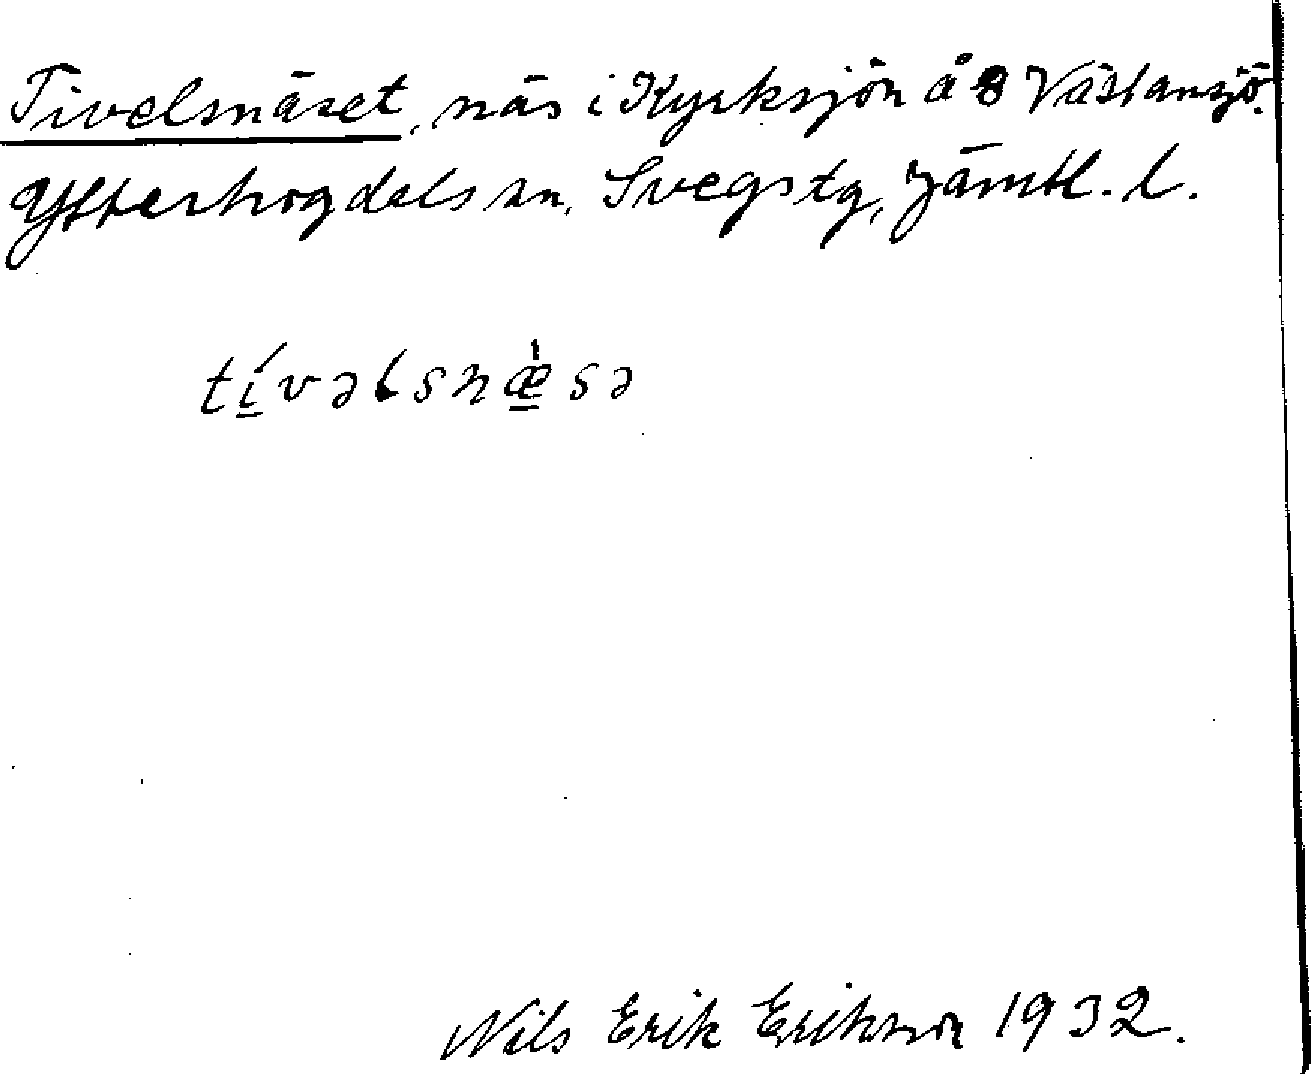 Tivelsnäset, näs i Kyrksjön å 8 Västansjö.
Ytterhogdals sn, Svegs tg, Jämtl. l.
tívəlsnæ̀sə
Nils Erik Erikson 1932.